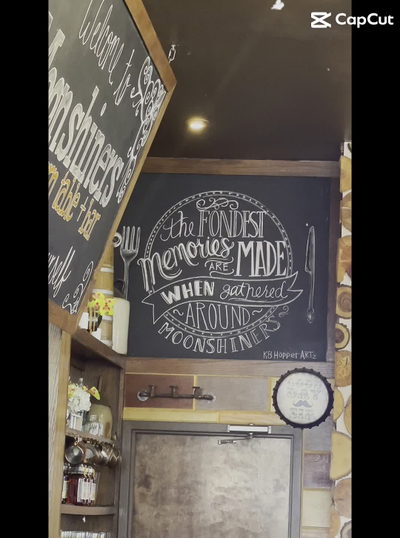 CapCut
Welcome to
Moonshiners
the FONDEST
Memories
ARE MADE
WHEN gathered
AROUND
MOONSHINERS
KB Hopper ARTz